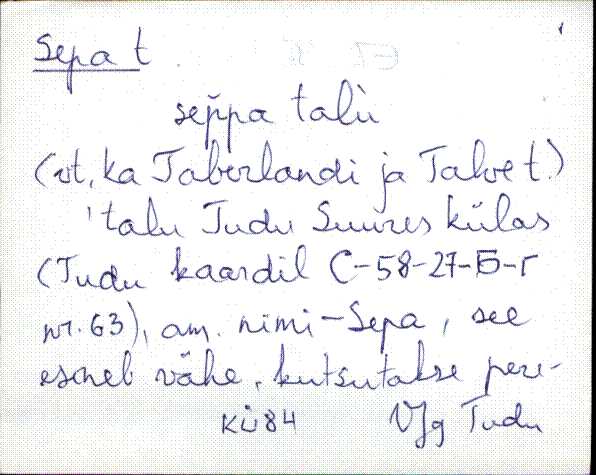 Sepa t.
sep̆pa talù
(vt. ka Taberlandi ja Talve t.)
'talu Tudu Suures külas
(Tudu kaardil C-58-27-Б-г
nr. 63), am. nimi - Sepa, see
esineb vähe, kutsutakse pere-
KÜ84 VJg Tudu